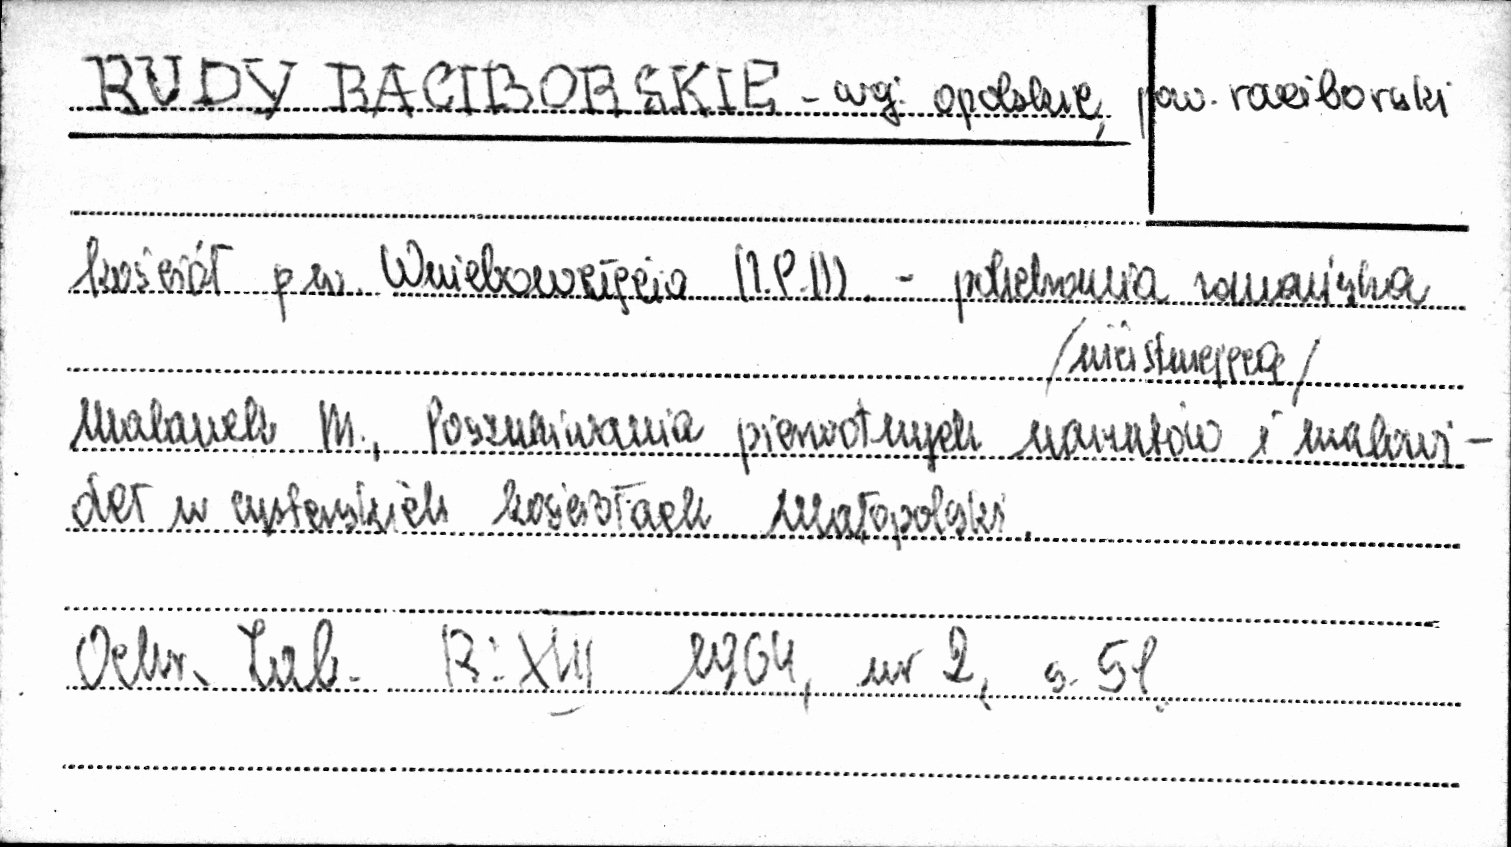 RUDY RACIBORSKIE - woj. opolskie, pow. raciborski
kościół p.w. Wniebowzięcia N.P.M. - polichromia romańska
/nieistniejąca/
M., Poszukiwania pierwotnych narzutów i malowi-
deł w cysterskich kościołach Małopolski.
Ochr. Zab. R: XVII 1964, nr 2, s. 51